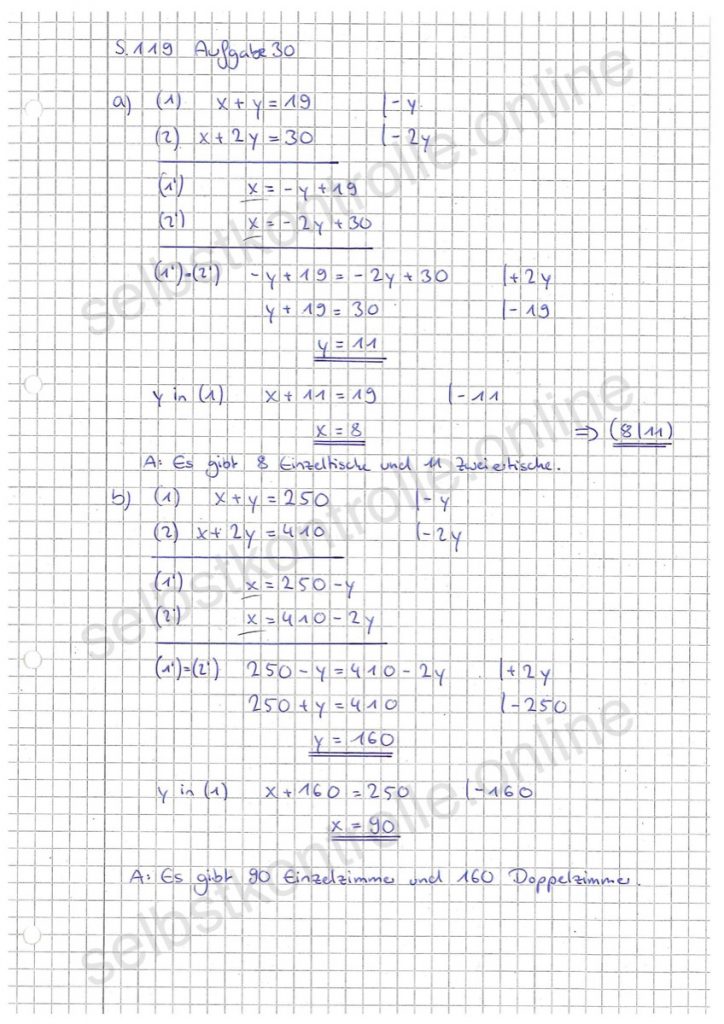 S. 119 Aufgabe 30
a) (1) x + y = 19 |- y
(2) x + 2y = 30 |- 2y
(1') x = - y + 19
(2') x = - 2y + 30
(1') = (2') - y + 19 = - 2y + 30 |+ 2y
y + 19 = 30 |- 19
y = 11
y in (1) x + 11 = 19 |- 11
x = 8 ⇒ (8|11)
A: Es gibt 8 Einzeltische und 11 Zweiertische.
b) (1) x + y = 250 |- y
(2) x + 2y = 410 |- 2y
(1') x = 250 - y
(2') x = 410 - 2y
(1') = (2') 250 - y = 410 - 2y |+ 2y
250 + y = 410 |- 250
y = 160
y in (1) x + 160 = 250 |- 160
x = 90
A: Es gibt 90 Einzelzimmer und 160 Doppelzimmer.
selbstkontrolle.online
selbstkontrolle.online
selbstkontrolle.online